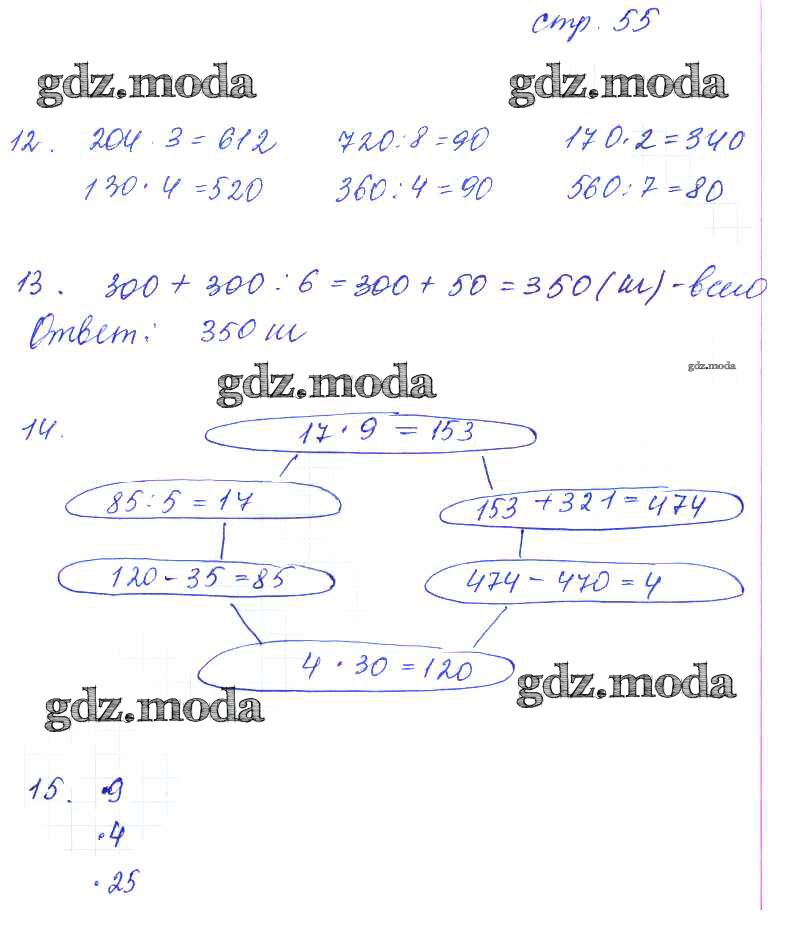 стр. 55
gdz.moda gdz.moda
12. 204 · 3 = 612 720 : 8 = 90 170 · 2 = 340
130 · 4 = 520 360 : 4 = 90 560 : 7 = 80
13. 300 + 300 : 6 = 300 + 50 = 350 (ш) - всего
Ответ: 350 ш
gdz.moda
gdz.moda
14. 17 · 9 = 153
85 : 5 = 17 153 + 321 = 474
120 - 35 = 85 474 - 470 = 4
4 · 30 = 120
gdz.moda gdz.moda
15. · 9
· 4
· 25